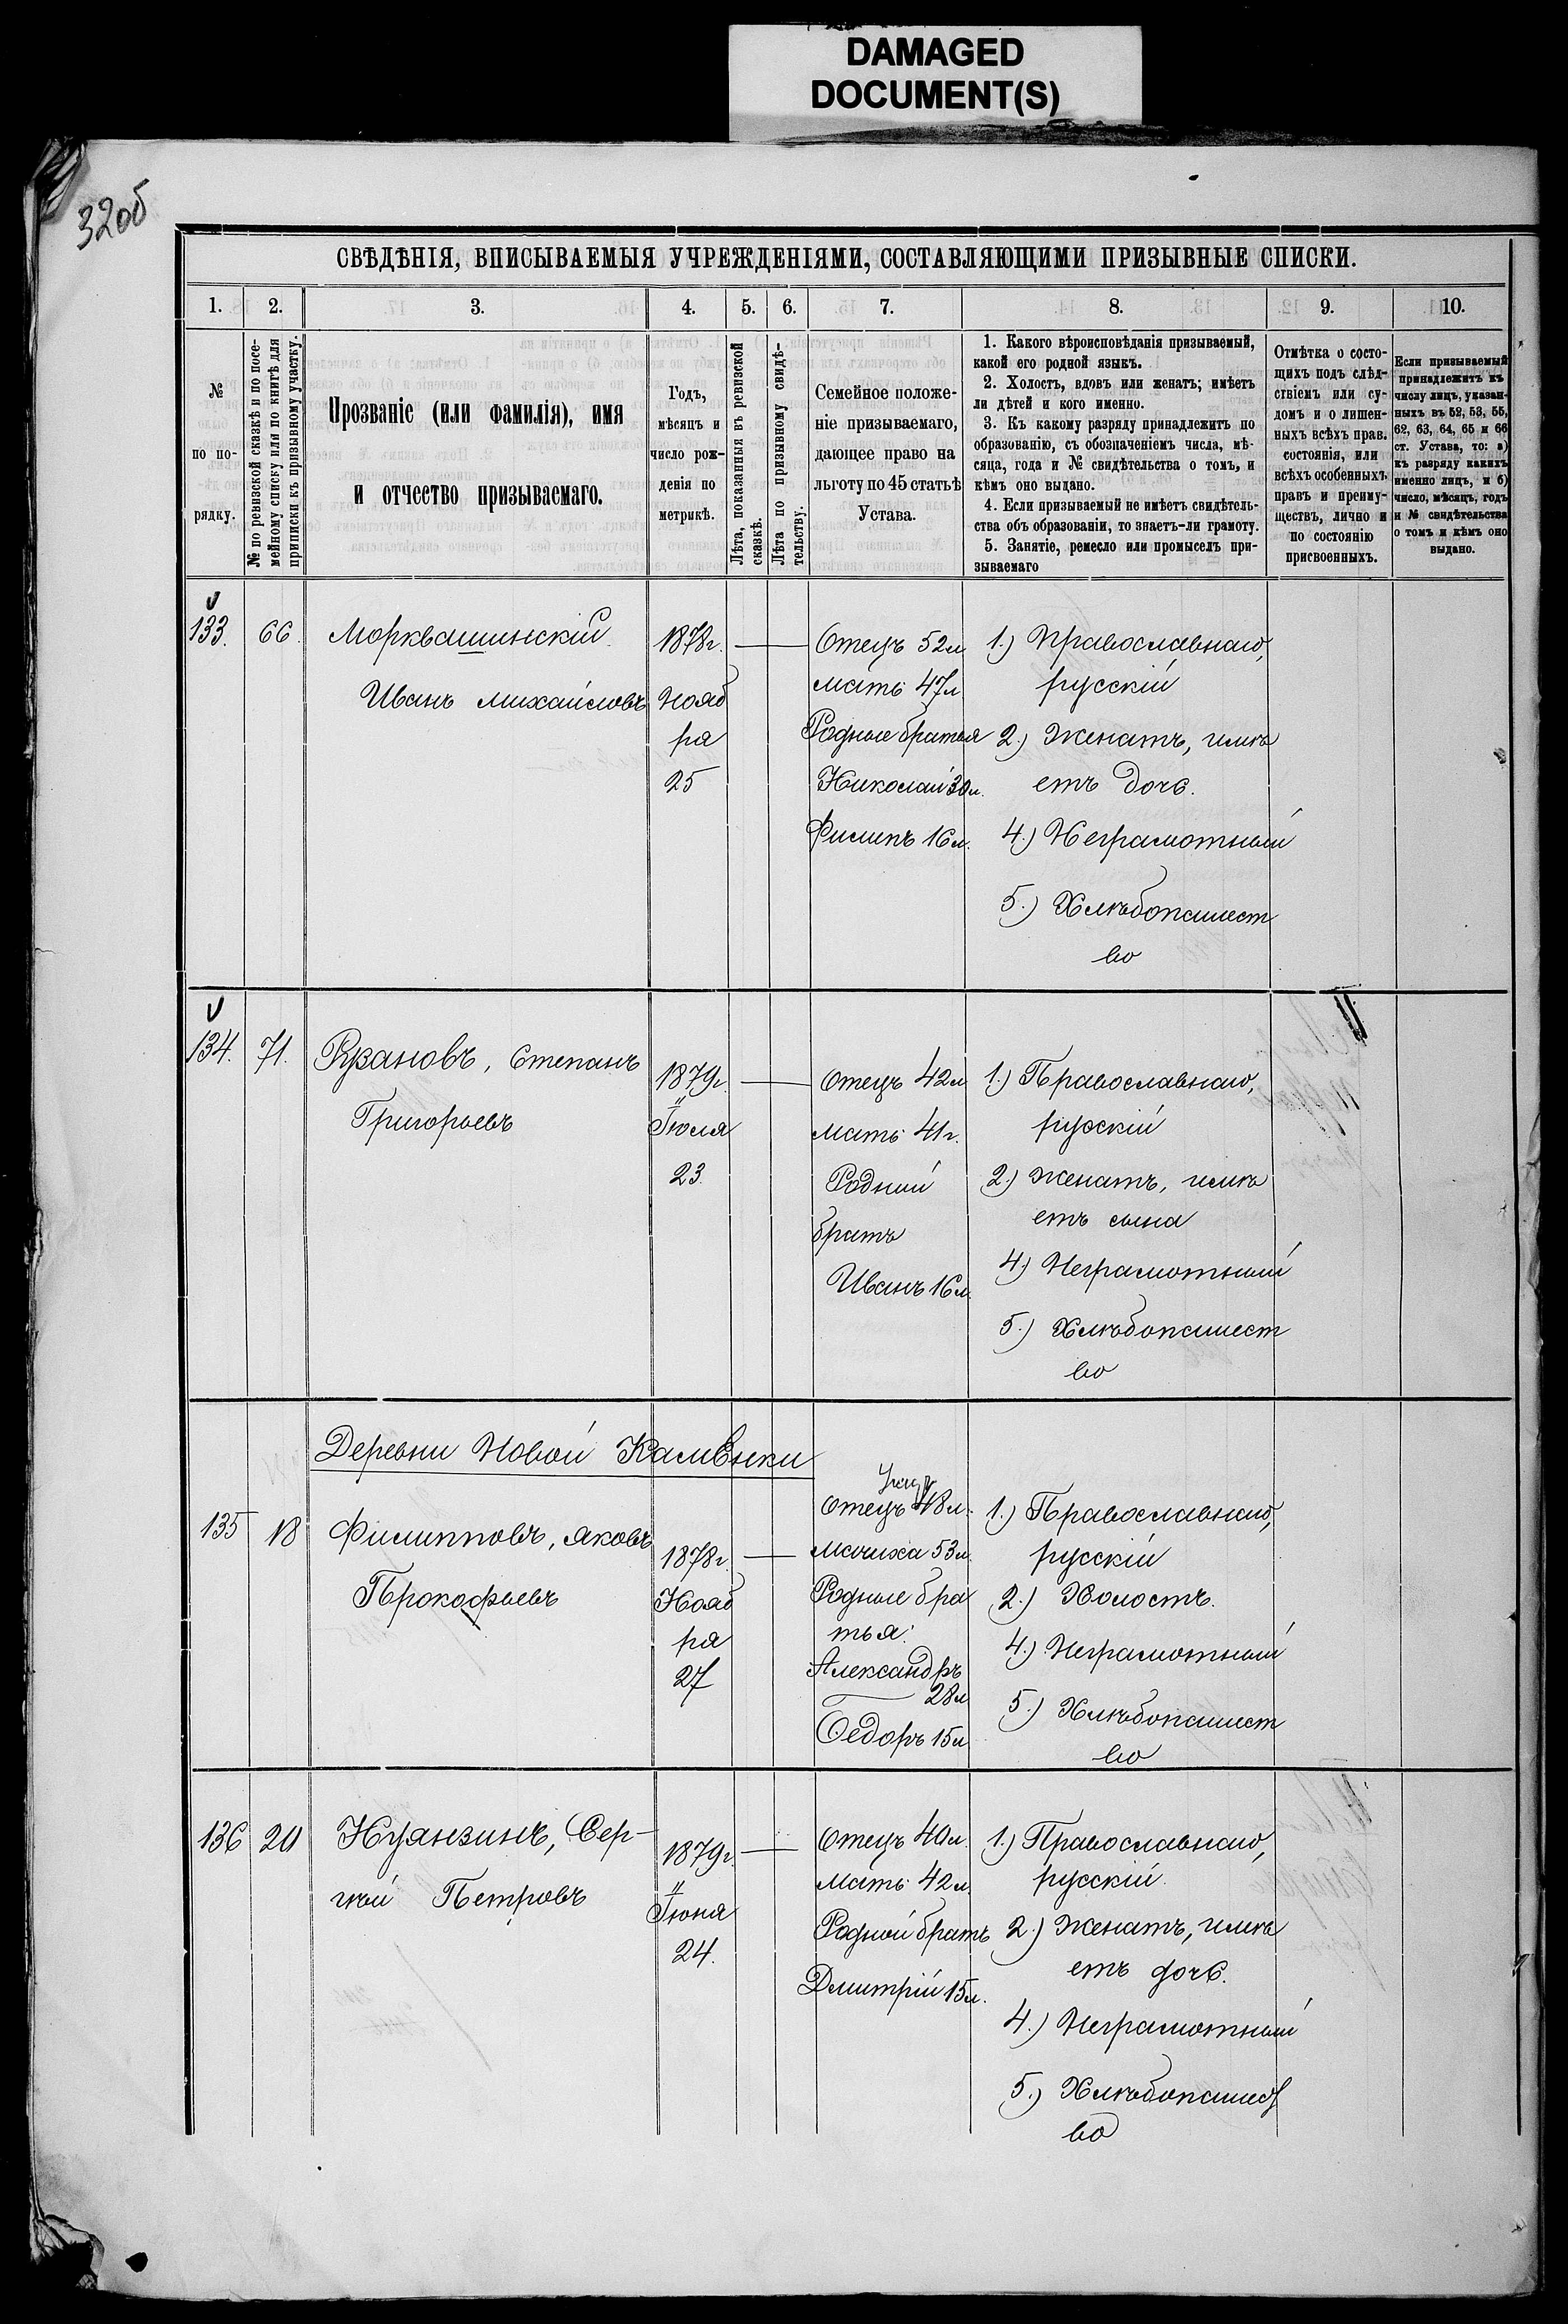 DAMAGED
DOCUMENT(S)
32об
СВѢДѢНІЯ, ВПИСЫВАЕМЫЯ УЧРЕЖДЕНІЯМИ, СОСТАВЛЯЮЩИМИ ПРИЗЫВНЫЕ СПИСКИ.
1. 2. 3. 4. 5. 6. 7. 8. 9. 10.
№
по по-
рядку.
№ по ревизской сказкѣ и по посе-
мейному списку или по книгѣ для
приписки къ призывному участку.
Прозваніе (или фамилія), имя
и отчество призываемаго.
Годъ,
мѣсяцъ и
число рож-
денія по
метрикѣ.
Лѣта, показанныя въ ревизской
сказкѣ.
Лѣта по призывному свидѣ-
тельству.
Семейное положе-
ніе призываемаго,
дающее право на
льготу по 45 статьѣ
Устава.
1. Какого вѣроисповѣданія призываемый,
какой его родной языкъ.
2. Холостъ, вдовъ или женатъ; имѣетъ
ли дѣтей и кого именно.
3. Къ какому разряду принадлежитъ по
образованію, съ обозначеніемъ числа, мѣ-
сяца, года и № свидѣтельства о томъ, и
кѣмъ оно выдано.
4. Если призываемый не имѣетъ свидѣтель-
ства объ образованіи, то знаетъ-ли грамоту.
5. Занятіе, ремесло или промыселъ при-
зываемаго
Отмѣтка о состо-
щихъ подъ слѣд-
ствіемъ или су-
домъ и о лишен-
ныхъ всѣхъ прав.
состоянія, или
всѣхъ особенныхъ
правъ и преиму-
ществъ, лично и
по состоянію
присвоенныхъ.
Если призываемый
принадлежитъ къ
числу лицъ, указан-
ныхъ въ 52, 53, 55,
62, 63, 64, 65 и 66
ст. Устава, то: а)
къ разряду какихъ
именно лицъ, и б)
число, мѣсяцъ, годъ
и № свидѣтельства
о томъ и кѣмъ оно
выдано.
133. 66.
Морквашинскій
Иванъ Михайловъ
1878г.
Нояб
ря
25
Отецъ 52л
Мать 47л
Родные братья
Николай 30л.
Филипъ 16л.
1.) Православнаго,
русскій
2.) Женатъ, имѣ
етъ дочь.
4.) Неграмотный
5.) Хлѣбопашест
во
134. 71.
Рязановъ, Степанъ
Григорьевъ
1879г.
Іюля
23.
Отецъ 42л
Мать 41г.
Родный
братъ
Иванъ 16л.
1.) Православнаго,
русскій
2.) Женатъ, имѣ
етъ сына
4) Неграмотный
5.) Хлѣбопашест
во
Деревни Новой Каменки
135 18
Филипповъ, Яковъ
Прокофьевъ
1878г.
Нояб
ря
27
Отецъ 48л.
Мачиха 53л.
Родные бра
тья:
Александръ
28л
Ѳедоръ 15л
1.) Православнаго,
русскій
2.) Холостъ.
4.) Неграмотный
5.) Хлѣбопашест
во
136 20
Нуянзинъ, Сер-
гѣй Петровъ
1879г.
Іюня
24.
Отецъ 40л.
Мать 42л.
Родной братъ
Дмитрій 15л.
1.) Православнаго,
русскій.
2.) Женатъ, имѣ
етъ дочь.
4.) Неграмотный
5.) Хлѣбопашест
во